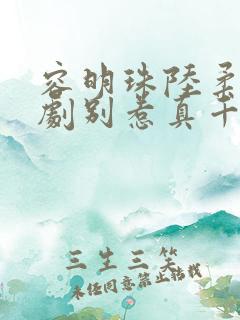 容明珠陸柔
劇別惹真千
三生三笑
未经同意禁止转载